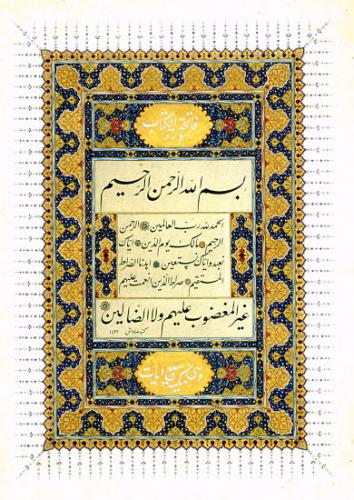 فاتحة الکتاب
بسم الله الرحمن الرحیم
الحمد لله رب العالمین الرحمن
الرحیم مالک یوم الدین ایاک
نعبد و ایاک نستعین اهدنا الصراط
المستقیم صراط الذین انعمت علیهم
غیر المغضوب علیهم ولا الضالین